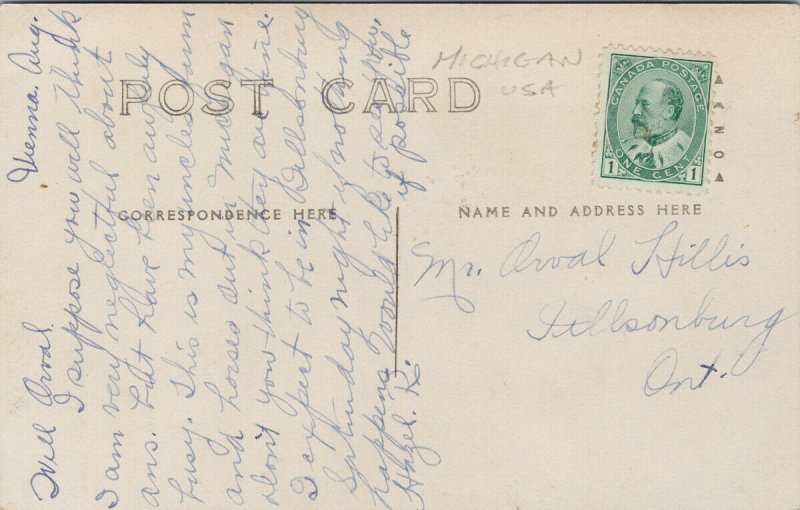 POST CARD
MICHIGAN
USA
CANADA POSTAGE
ONE CENT
1 1
AZNO
CORRESPONDENCE HERE
NAME AND ADDRESS HERE
Vienna. Aug.
Will Orval.
I suppose you will think
I am very neglectful about
ans. but have been awfully
busy. This is my uncles barn
and horses out in Michigan
don't you think they are fine.
I expect to be in Tillsonburg
Saturday night if nothing
happens. Would like to see you,
Hazel. R. if possible
Mr. Orval Hillis
Tillsonburg
Ont.